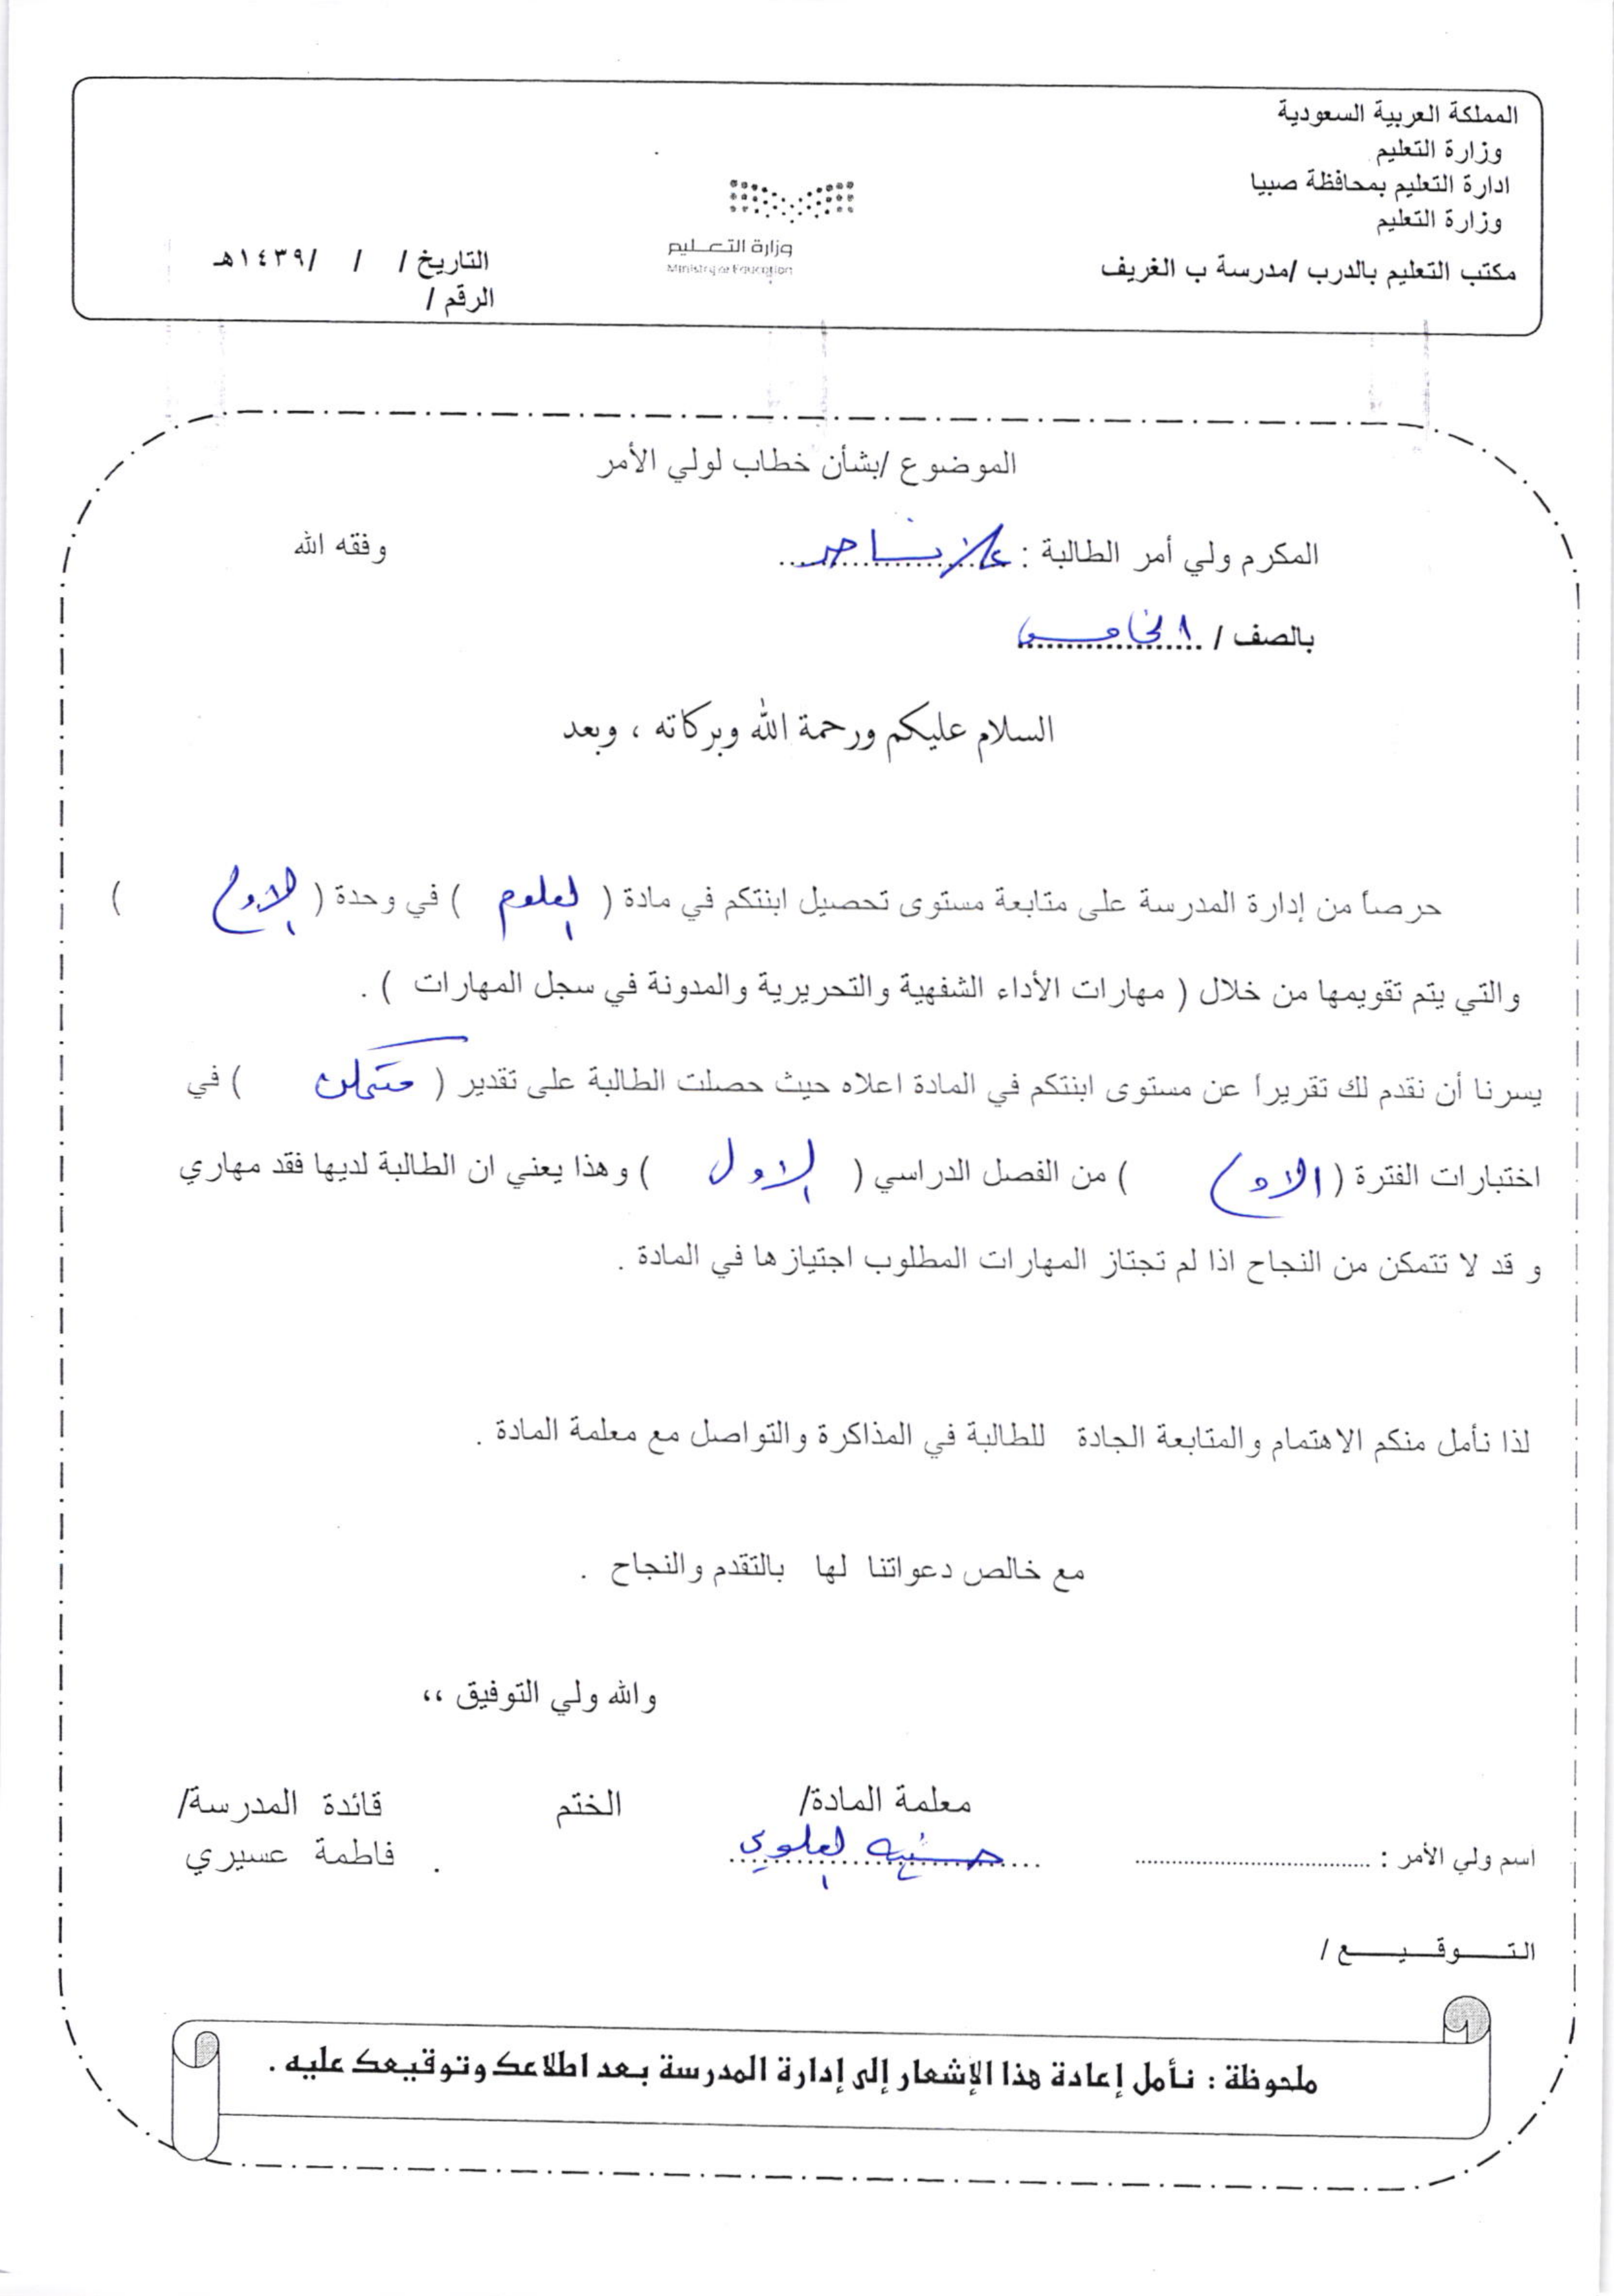 المملكة العربية السعودية
وزارة التعليم
ادارة التعليم بمحافظة صبيا
وزارة التعليم
مكتب التعليم بالدرب /مدرسة ب الغريف
وزارة التعليم
Ministry of Education
التاريخ / / /١٤٣٩هـ
الرقم /
الموضوع /بشأن خطاب لولي الأمر
المكرم ولي أمر الطالبة : .................... وفقه الله
بالصف / الخامس
السلام عليكم ورحمة الله وبركاته ، وبعد
حرصاً من إدارة المدرسة على متابعة مستوى تحصيل ابنتكم في مادة ( العلوم ) في وحدة ( الاولى )
والتي يتم تقويمها من خلال ( مهارات الأداء الشفهية والتحريرية والمدونة في سجل المهارات ) .
يسرنا أن نقدم لك تقريراً عن مستوى ابنتكم في المادة اعلاه حيث حصلت الطالبة على تقدير ( متمكن ) في
اختبارات الفترة ( الاولى ) من الفصل الدراسي ( الاول ) وهذا يعني ان الطالبة لديها فقد مهاري
و قد لا تتمكن من النجاح اذا لم تجتاز المهارات المطلوب اجتيازها في المادة .
لذا نأمل منكم الاهتمام والمتابعة الجادة للطالبة في المذاكرة والتواصل مع معلمة المادة .
مع خالص دعواتنا لها بالتقدم والنجاح .
والله ولي التوفيق ،،
معلمة المادة/ الختم قائدة المدرسة/
اسم ولي الأمر : .................... العلوي . فاطمة عسيري
التـــوقـــيـــع /
ملحوظة : نأمل إعادة هذا الإشعار إلى إدارة المدرسة بعد اطلاعك وتوقيعك عليه .